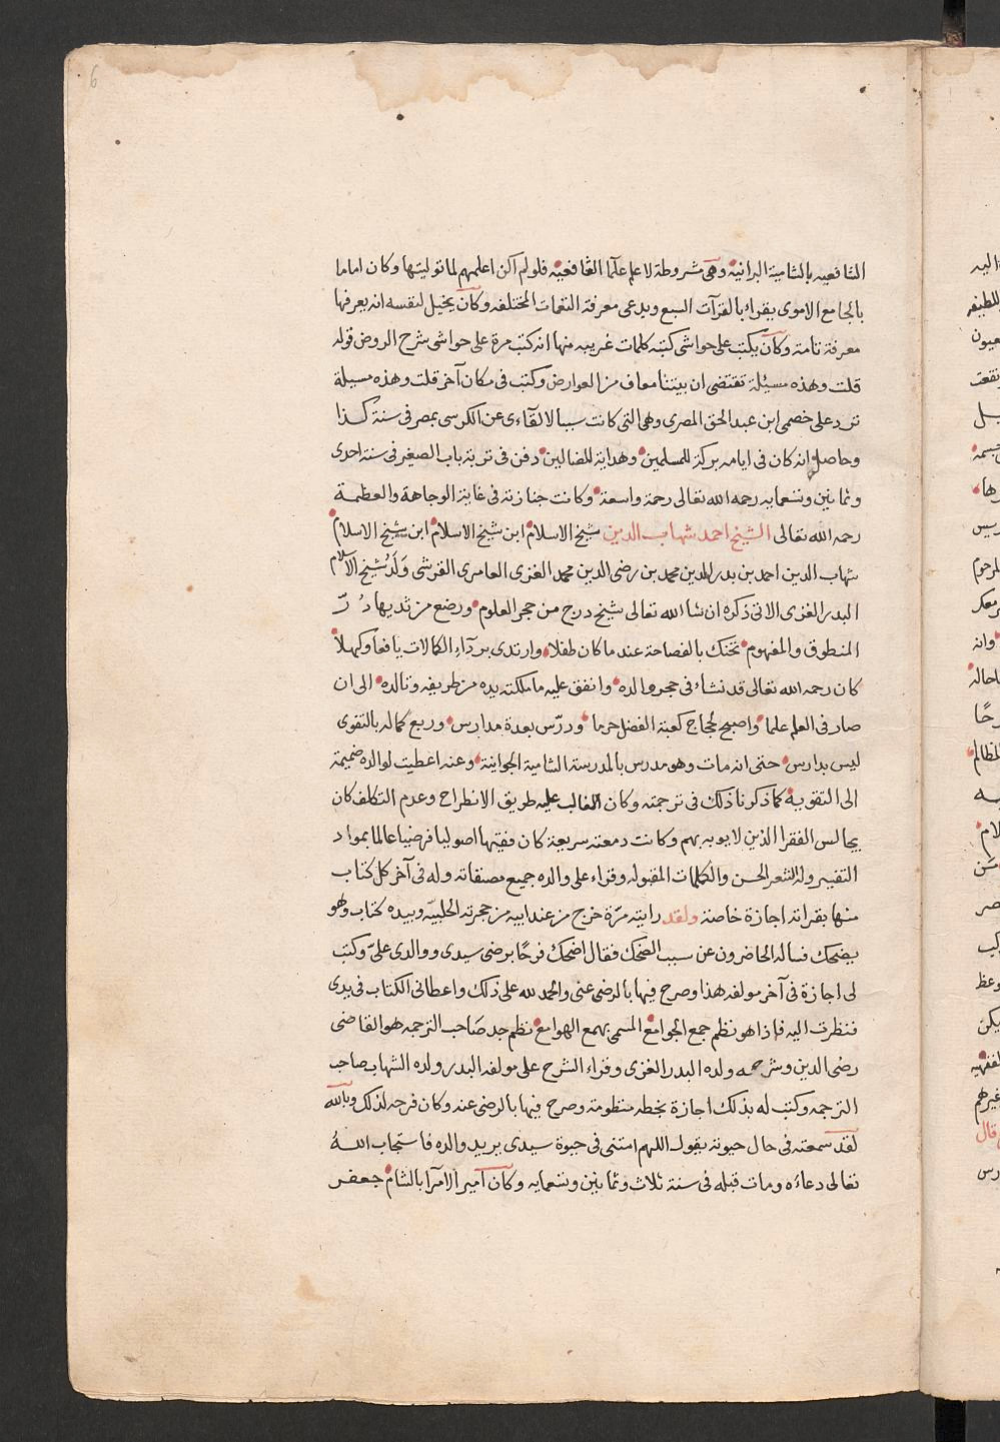 الشافعيه بالشامية البرانية وهى مشروطة لاعلم علماء الشافعية فلولم اكن اعلمهم لما توليتها وكان اماما
بالجامع الاموى يقراء بالقرآت السبع ويدعى معرفة النغمات المختلفه وكان يخيل لنفسه انه يعرفها
معرفة تامة وكان يكتب على حواشى كتبه كلمات غريبه منها انه كتب مرة على حواشى شرح الروض قوله
قلت وهذه مسئلة تقتضى ان بيتنا معاف من العوارض وكتب فى مكان آخر قلت وهذه مسيلة
ترد على خصمى ابن عبد الحق المصرى وهى التى كانت سببا لالقآءى عن الكرسى بمصر فى سنة كذا
وحاصله انه كان فى ايامه بركة للمسلمين وهداية للضالين دفن فى تربة باب الصغير فى سنة احدى
وثمانين وتسعمايه رحمه الله تعالى رحمة واسعة وكانت جنازته فى غاية الوجاهة والعظمة
رحمه الله تعالى الشيخ احمد شهاب الدين شيخ الاسلام ابن شيخ الاسلام ابن شيخ الاسلام
شهاب الدين احمد بن بدر الدين محمد بن رضى الدين محمد الغزى العامرى القرشى ولد شيخ الاسلام
البدر الغزى الاتى ذكره ان شا الله تعالى شيخ درج من حجر العلوم ورضع من ثديها در
المنطوق والمفهوم تحنك بالفصاحة عند ما كان طفلا وارتدى برداء الكمالات يافعا وكهلا
كان رحمه الله تعالى قد نشاء فى حجر والده وانفق عليه ما ملكته يده من طريفه وتالده الى ان
صار فى العلم علما واصبح لحجاج كعبة الفضل حرما ودرّس بعدة مدارس وربع كماله بالتقوى
ليس بدارس حتى انه مات وهو مدرس بالمدرسة الشامية الجوانية وعنه اعطيت لوالده ضميمة
الى التقوية كما ذكرنا ذلك فى ترجمته وكان الغالب عليه طريق الانطراح وعدم التكلف كان
يجالس الفقرا الذين لا يوبه بهم وكانت دمعته سريعة كان فقيها اصوليا فرضيا عالما بمواد
التفسير وله الشعر الحسن والكلمات المقبوله وقراء على والده جميع مصنفاته وله فى آخر كل كتاب
منها بقراته اجازة خاصة ولقد رايته مرّة خرج من عند ابيه من حجرته الحلبيّه وبيده كتاب وهو
يضحك فساله الحاضرون عن سبب الضحك فقال اضحك فرحًا برضى سيدى ووالدى علىّ وكتب
لى اجازة فى آخر مولفه هذا وصرح فيها بالرضى عنى والحمد لله على ذلك واعطانى الكتاب فى يدى
فنظرت اليه فاذا هو نظم جمع الجوامع المسمى بهمع الهوامع نظم جد صاحب الترجمه هو القاضى
رضى الدين وشرحه ولده البدر الغزى وقراء الشرح على مولفه البدر ولده الشهاب صاحب
الترجمه وكتب له بذلك اجازة بخطه منظومة وصرح فيها بالرضى عنه وكان فرحه لذلك وبالله
لقد سمعته فى حال حيوته يقول اللهم امتنى فى حيوة سيدى يريد والده فاستجاب الله
تعالى دعاءه ومات قبله فى سنة ثلاث وثمانين وتسعمايه وكان امير الامرا بالشام جعفر